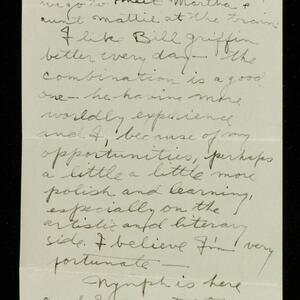 we go to meet Martha &
aunt mattie at the train
I like Bill griffin
better every day — the
combination is a good
one — he having more
worldly experience
and I, because of my
opportunities, perhaps
a little a little more
polish and learning,
especially on the
artistic and literary
side. I believe I'm very
fortunate —
Nymph is here